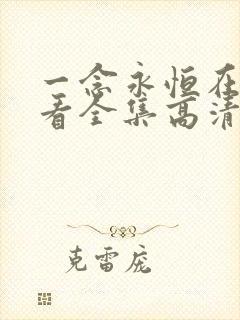 一念永恒在
看全集高清
克雷庞